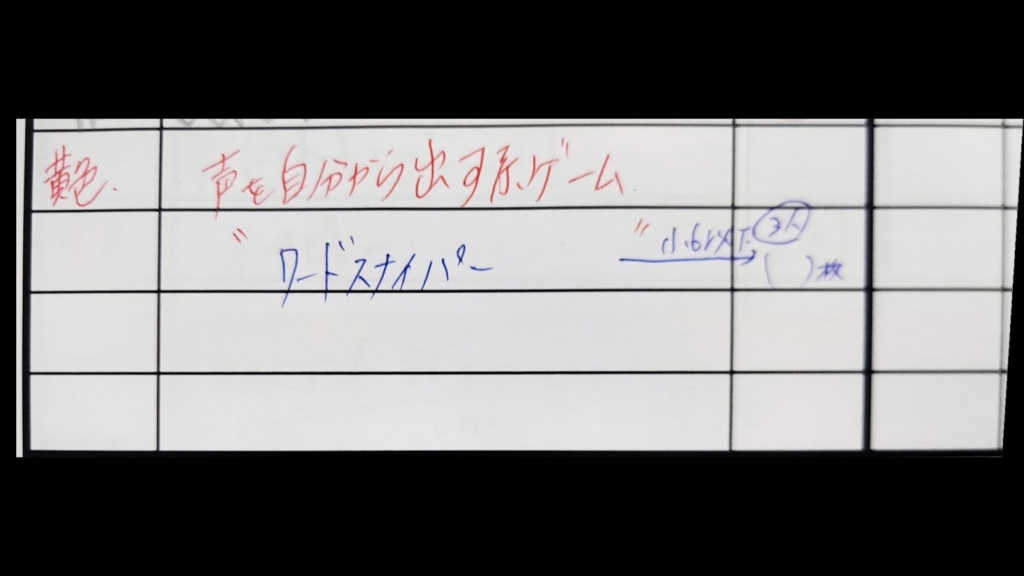 黄色. 声を自分から出す系ゲーム
〃 ワードスナイパー 〃 小6以下 3人
( )枚